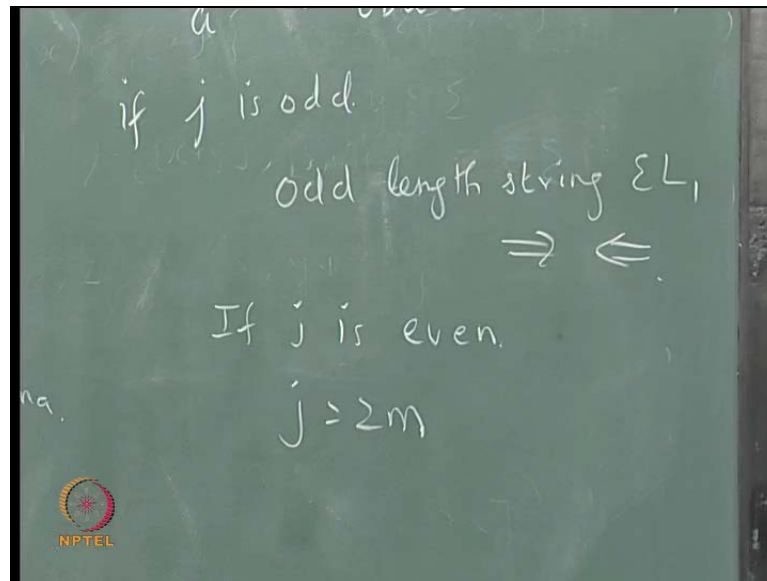 a
if j is odd.
odd length string ∈ L₁
⇒ ⇐
If j is even.
na.
j = 2m
NPTEL